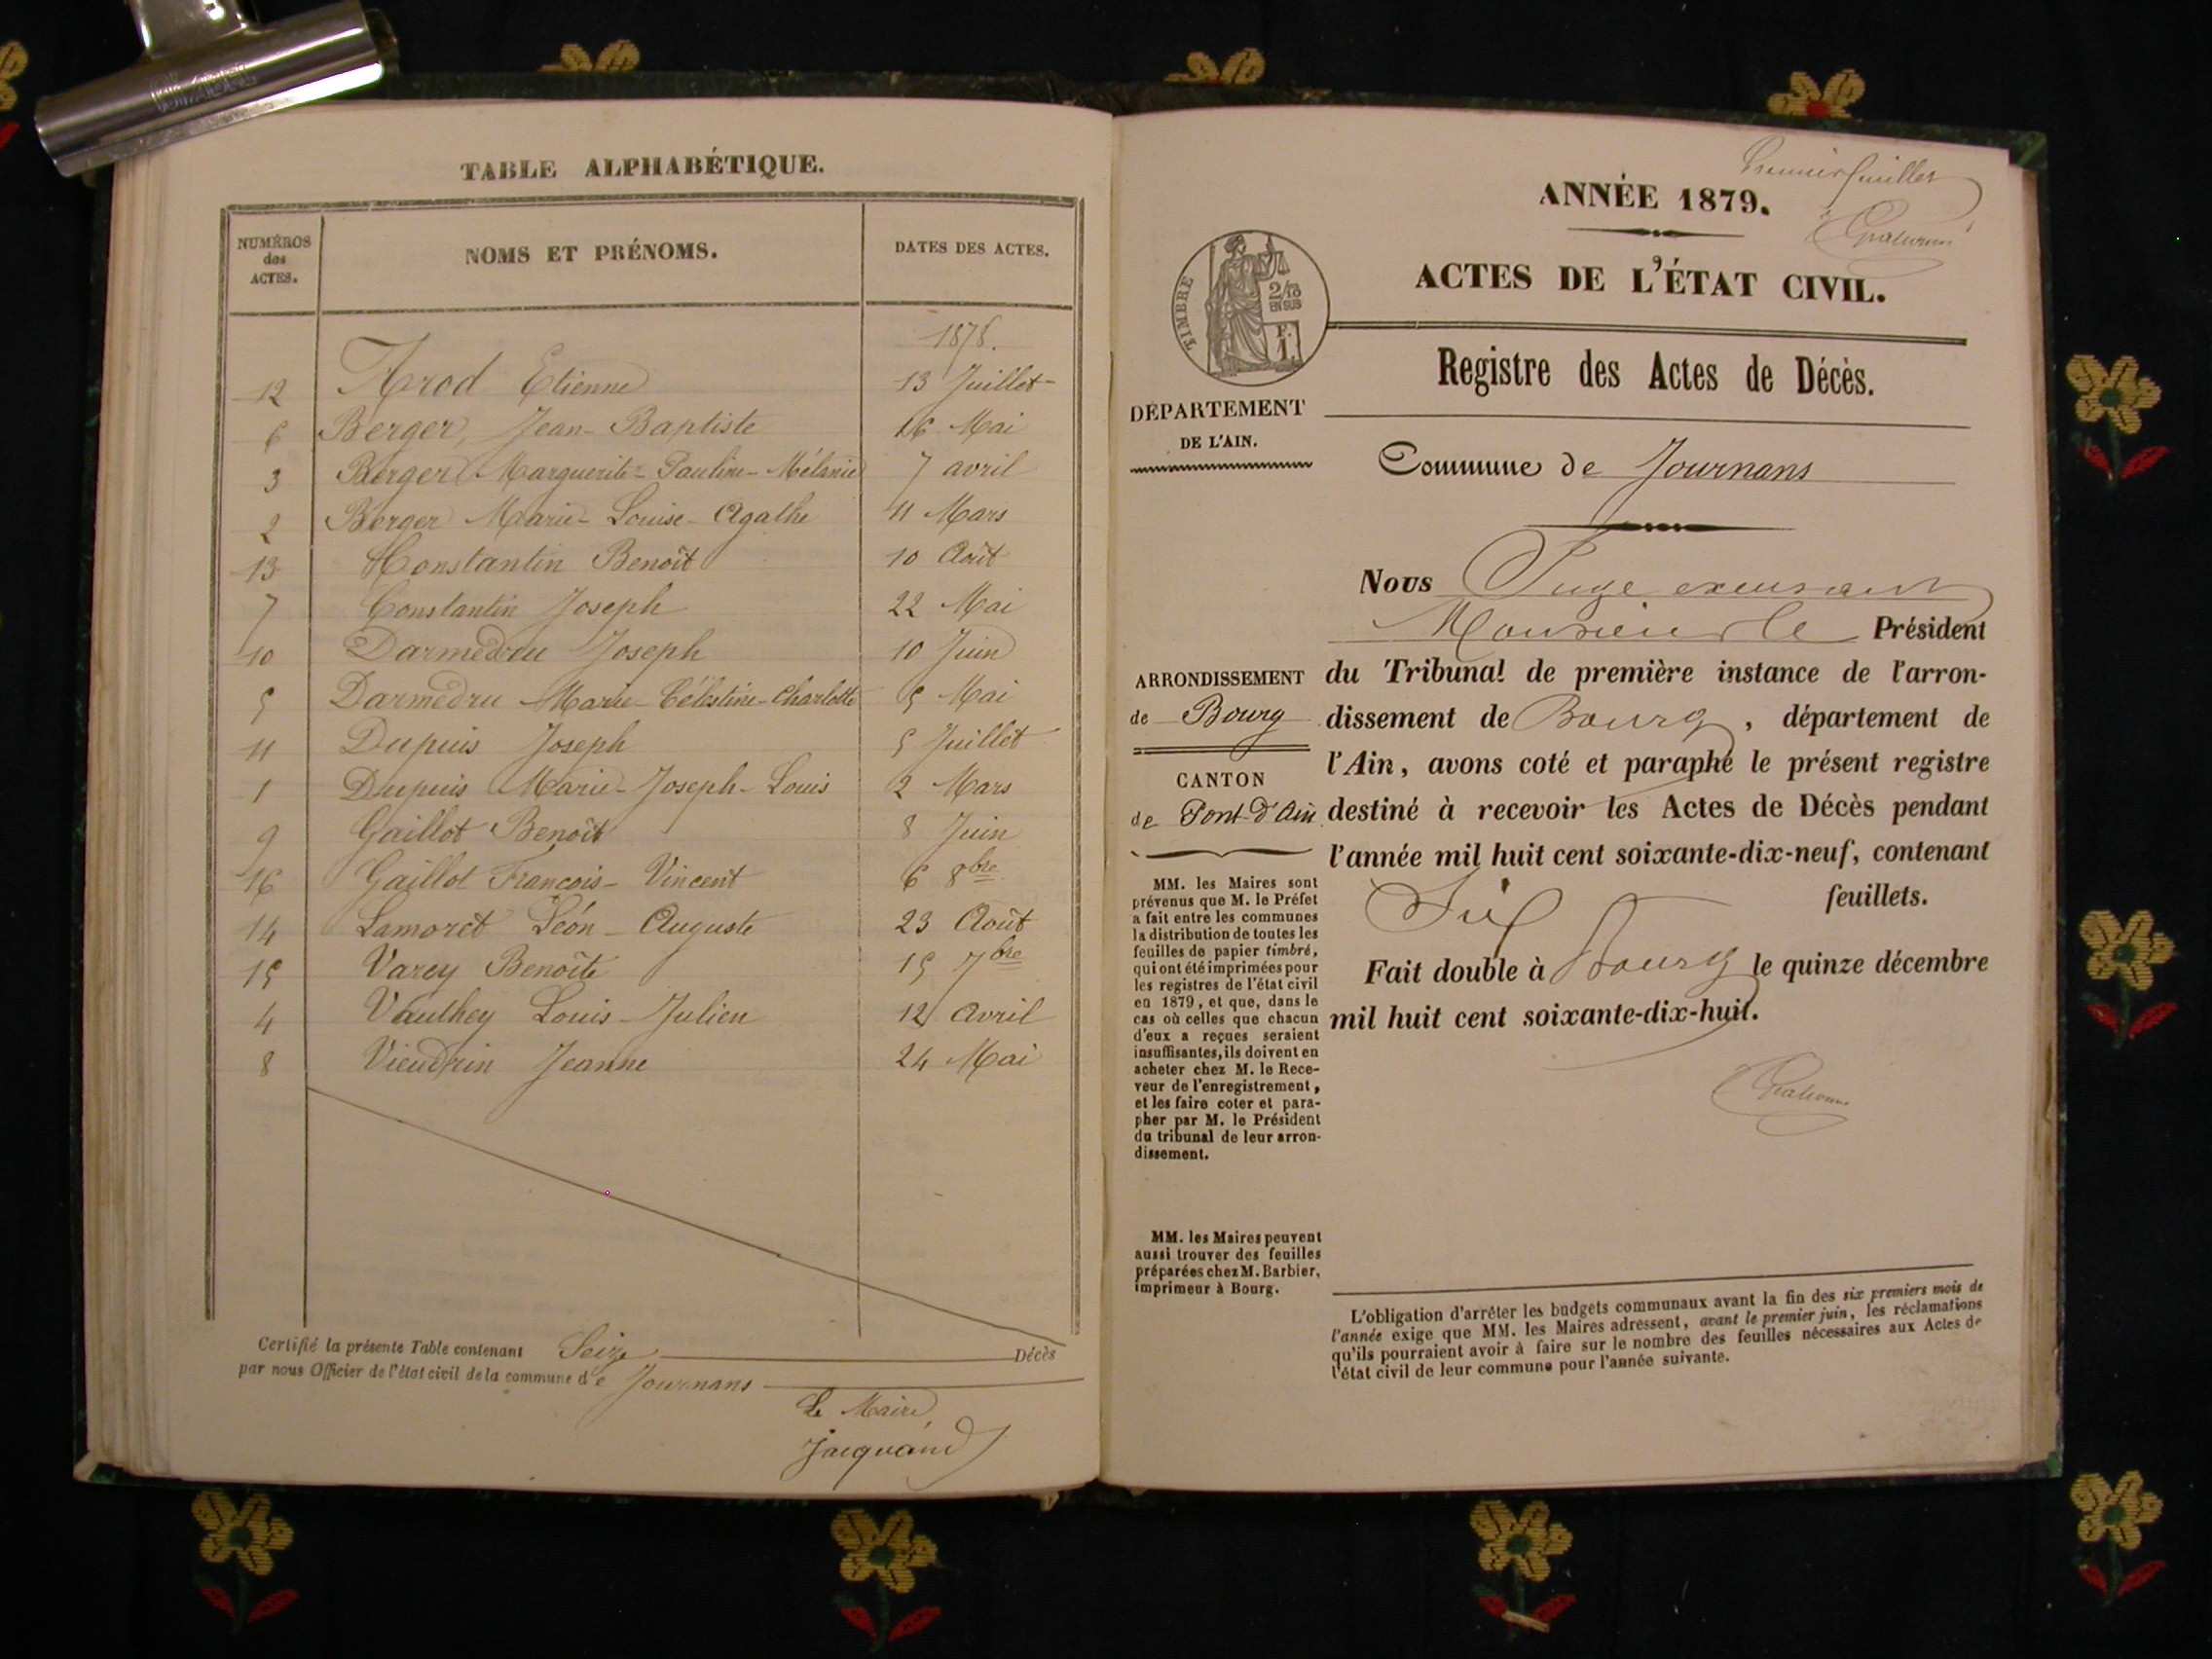 TABLE ALPHABÉTIQUE.
NUMÉROS des ACTES. NOMS ET PRÉNOMS. DATES DES ACTES.
1878.
12 Arod Etienne 13 Juillet
6 Berger, Jean-Baptiste 16 Mai
3 Berger Marguerite-Pauline-Mélanie 7 avril
2 Berger Marie-Louise-Agathe 11 Mars
13 Constantin Benoît 10 Août
7 Constantin Joseph 22 Mai
10 Darmedru Joseph 10 Juin
5 Darmedru Marie-Célestine-Charlotte 5 Mai
11 Dupuis Joseph 5 Juillet
1 Dupuis Marie-Joseph-Louis 2 Mars
9 Gaillot Benoît 8 Juin
16 Gaillot François-Vincent 6 8bre
14 Lamoret Léon-Auguste 23 Août
15 Varey Benoîte 15 7bre
4 Vaulhey Louis-Julien 12 Avril
8 Vieudrin Jeanne 24 Mai
Certifié la présente Table contenant Seize Décès
par nous Officier de l'état civil de la commune de Journans
Le Maire,
Jacquand
Premier feuillet
ANNÉE 1879.
ACTES DE L'ÉTAT CIVIL.
TIMBRE
2/10
EN SUS
F.
1.
Registre des Actes de Décès.
DÉPARTEMENT
DE L'AIN.
Commune de Journans
Nous Juge excusant
Monsieur le Président
du Tribunal de première instance de l'arron-
dissement de Bourg, département de
l'Ain, avons coté et paraphé le présent registre
destiné à recevoir les Actes de Décès pendant
l'année mil huit cent soixante-dix-neuf, contenant
Six feuillets.
Fait double à Bourg le quinze décembre
mil huit cent soixante-dix-huit.
ARRONDISSEMENT
de Bourg
CANTON
de Pont-d'Ain
MM. les Maires sont
prévenus que M. le Préfet
a fait entre les communes
la distribution de toutes les
feuilles de papier timbré,
qui ont été imprimées pour
les registres de l'état civil
en 1879, et que, dans le
cas où celles que chacun
d'eux a reçues seraient
insuffisantes, ils doivent en
acheter chez M. le Rece-
veur de l'enregistrement,
et les faire coter et para-
pher par M. le Président
du tribunal de leur arron-
dissement.
MM. les Maires peuvent
aussi trouver des feuilles
préparées chez M. Barbier,
imprimeur à Bourg.
L'obligation d'arrêter les budgets communaux avant la fin des six premiers mois de
l'année exige que MM. les Maires adressent, avant le premier juin, les réclamations
qu'ils pourraient avoir à faire sur le nombre des feuilles nécessaires aux Actes de
l'état civil de leur commune pour l'année suivante.